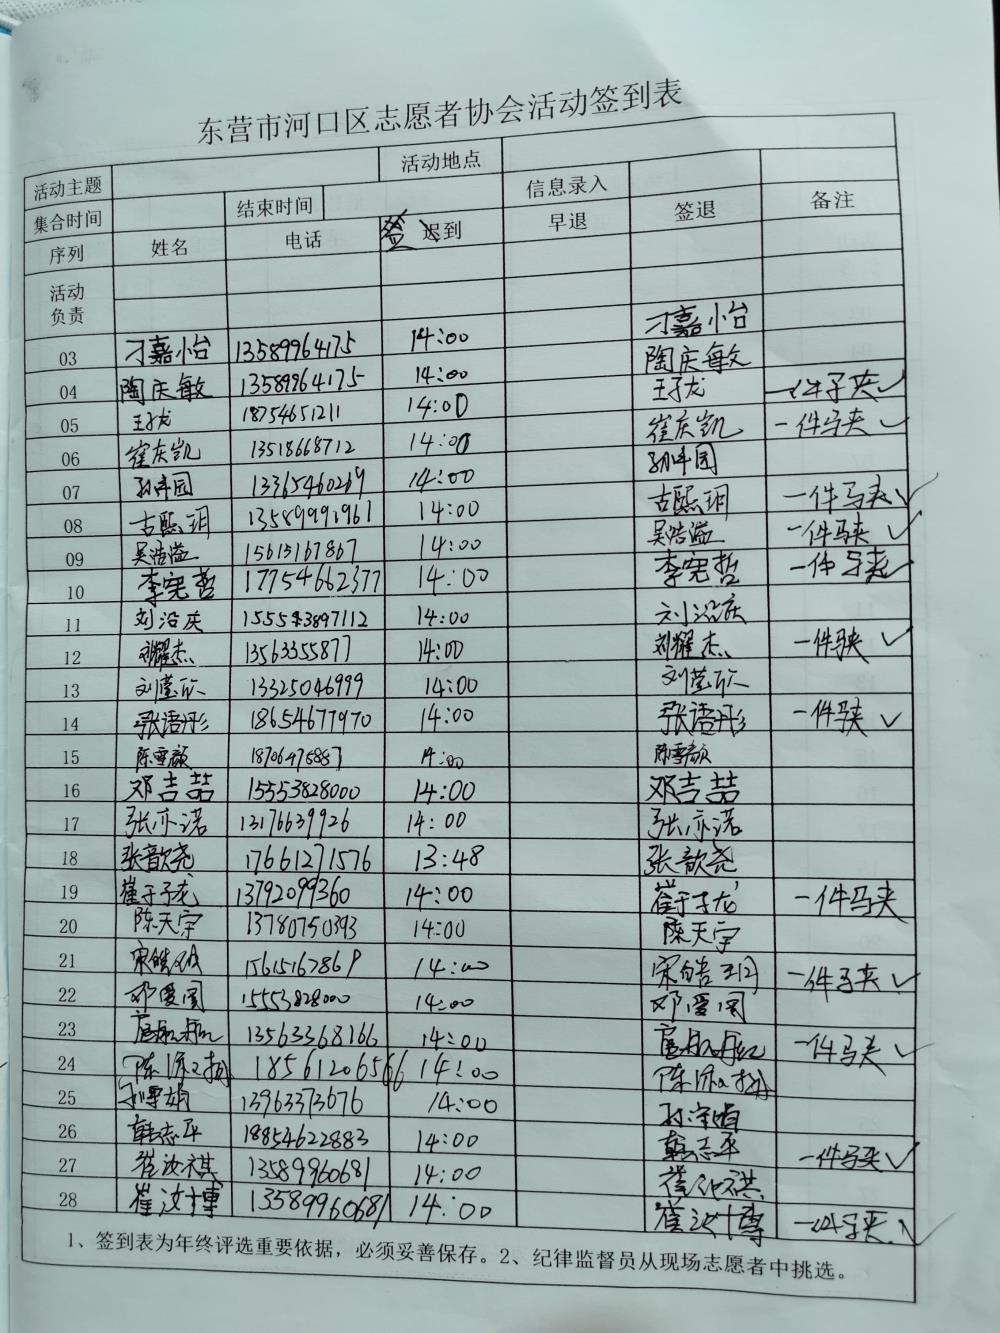 东营市河口区志愿者协会活动签到表
活动主题 活动地点
集合时间 结束时间 信息录入 备注
序列 姓名 电话 迟到 早退 签退
活动
负责
03 刁嘉小怡 13589964175 14:00 刁嘉小怡
04 陶庆敏 13589964175 14:00 陶庆敏
05 王子龙 18754651211 14:00 王子龙 一件马夹✓
06 崔庆凯 13518668712 14:00 崔庆凯 一件马夹✓
07 13365460269 14:00
08 古熙玥 13589991961 14:00 古熙玥 一件马夹✓
09 吴浩溢 15615167867 14:00 吴浩溢 一件马夹✓
10 李宪哲 17754662377 14:00 李宪哲 一件马夹✓
11 刘沿庆 14:00 刘沿庆
12 刘耀杰 13563355877 14:00 刘耀杰 一件马夹✓
13 刘莹欣 13325046999 14:00 刘莹欣
14 张语彤 18654677970 14:00 张语彤 一件马夹✓
15 陈雪颜 14:00 陈雪颜
16 邓吉喆 15553828000 14:00 邓吉喆
17 张亦诺 13176639926 14:00 张亦诺
18 张歆尧 17661271576 13:48 张歆尧
19 崔于子龙 13792099360 14:00 崔于子龙 一件马夹
20 陈天宇 13780750393 14:00 陈天宇
21 15615167869 14:00 宋皓玥 一件马夹✓
22 邓爱国 15553828000 14:00 邓爱国
23 13563368166 14:00 一件马夹✓
24 18561206566 14:00
25 13963373676 14:00
26 韩志平 18854622883 14:00 韩志平 一件马夹✓
27 崔汝祺 13589960681 14:00 崔汝祺
28 崔汝博 13589960681 14:00 崔汝博 一件马夹✓
1、签到表为年终评选重要依据，必须妥善保存。2、纪律监督员从现场志愿者中挑选。